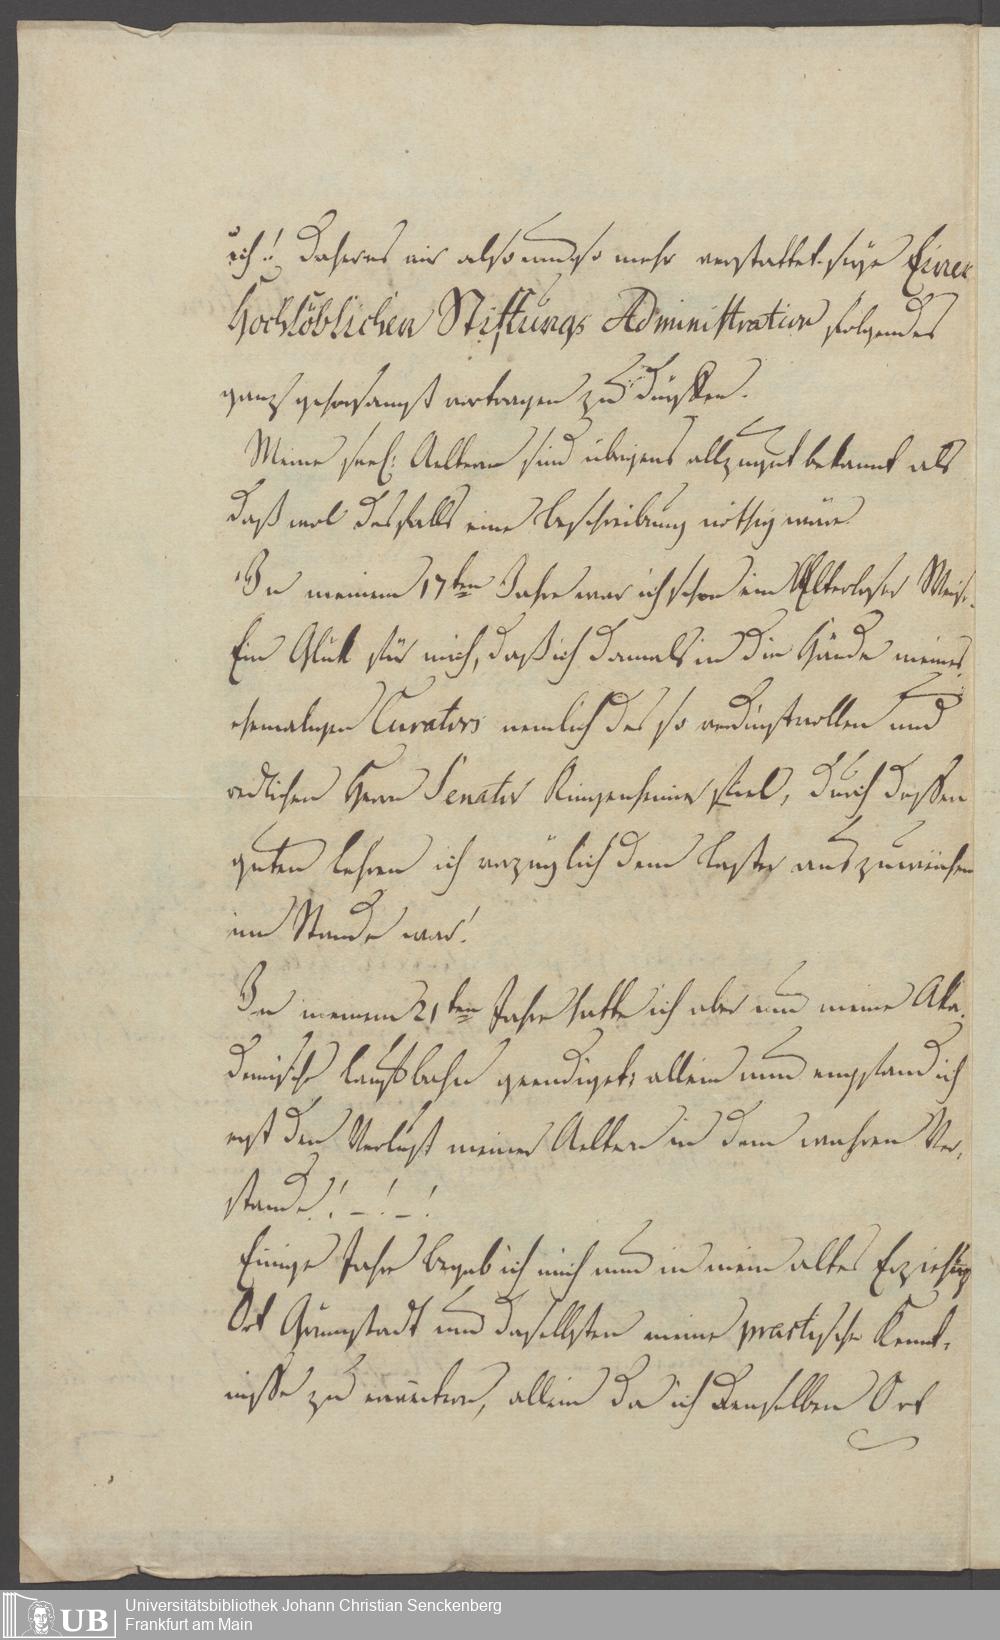 ich! Daher es mir also um so mehr verstattet seye Einer
Hochlöblichen Stiftungs Administration folgendes
ganz gehorsamst vortragen zu dürffen.
Meine seel: Aeltern sind übrigens allzugut bekannt als
daß wol desfalls eine Beschreibung nöthig wäre.
In meinem 17ten Jahre war ich schon ein Elterloser Weise.
Ein Glük für mich, daß ich damals in die Hände meines
ehemaligen Curators nemlich des so verdinstvollen und
redlichen Herrn Senator fiel, durch dessen
guten Lehren ich vorzüglich dem Laster auszuweichen
im Stande war!
In meinem 21ten Jahre hatte ich aber nun meine Aka,
demische Laufbahn geendiget; allein nun empfand ich
erst den Verlust meiner Aeltern in dem wahren Ver,
stande! – ! – !
Einige Jahre begab ich mich nun in mein altes Erziehungs
Ort Grünstadt um daselbsten meine practische Kennt,
nisse zu erweitern, allein da ich denselben Ort
UB Universitätsbibliothek Johann Christian Senckenberg
Frankfurt am Main